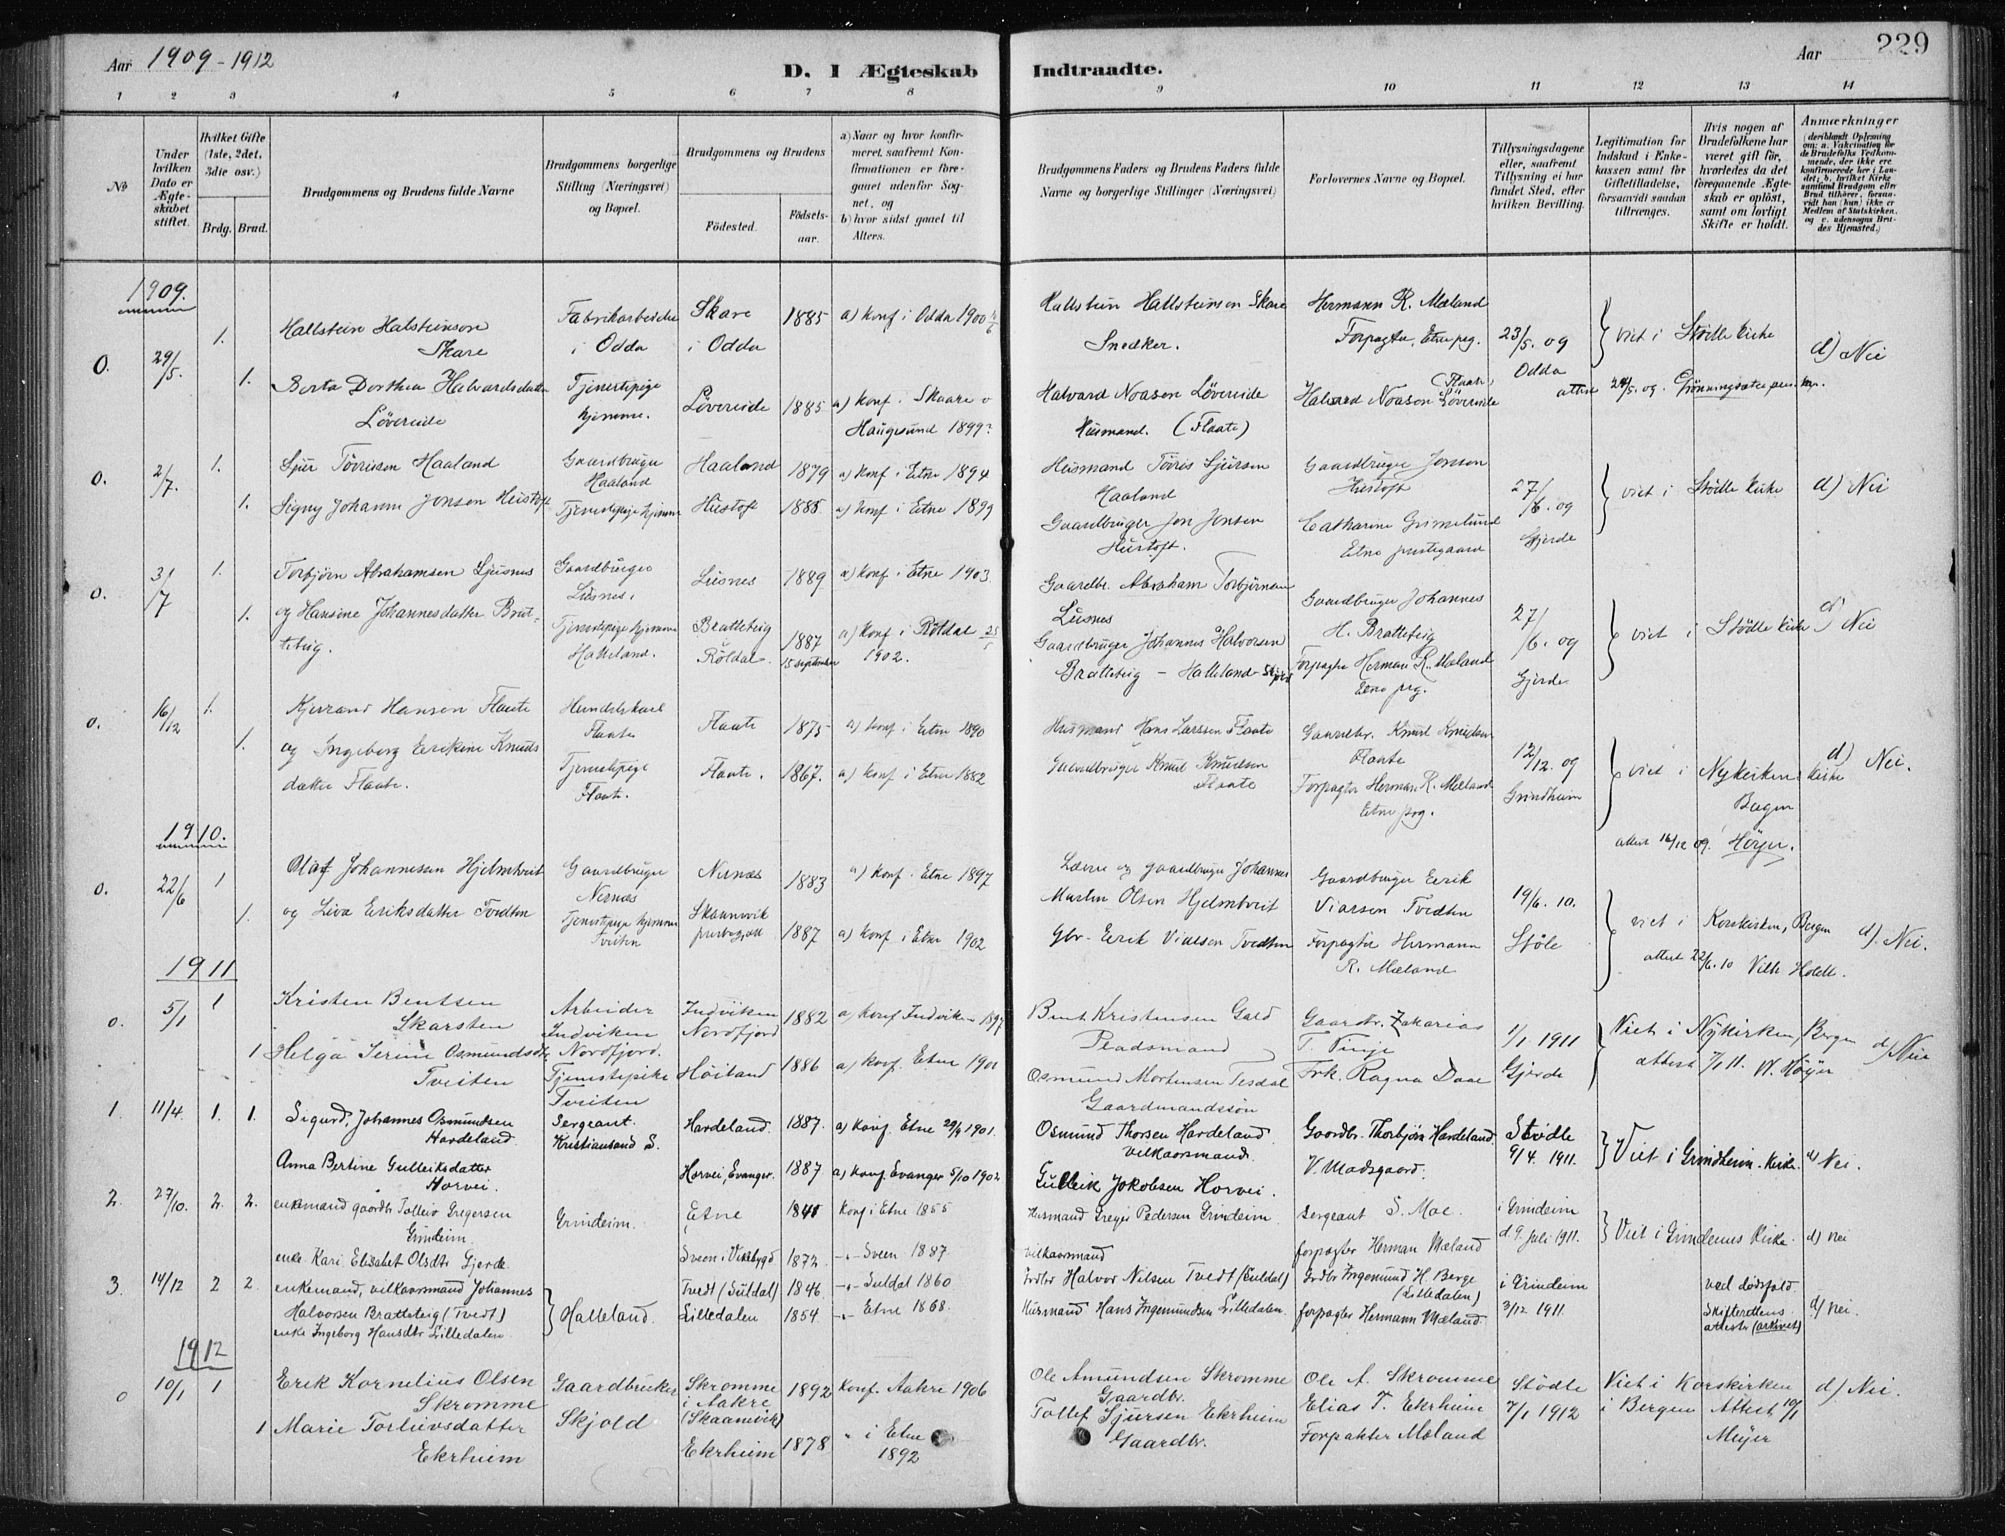 Aar 1909-1912
D. I Ægteskab Indtraadte.
Aar
229
1 2 3 4 5 6 7 8 9 10 11 12 13 14
No
Under hvilken Dato er Ægteskabet stiftet.
Hvilket Gifte (1ste, 2det, 3die osv.)
Brdg. Brud.
Brudgommens og Brudens fulde Navne
Brudgommens borgerlige Stilling (Næringsvei) og Bopæl.
Brudgommens og Brudens
Fødested.
Fødsels-aar.
a) Naar og hvor konfirmeret, saafremt Konfirmationen er foregaaet udenfor Sognet, og
b) hvor sidst gaaet til Alters.
Brudgommens Faders og Brudens Faders fulde Navne og borgerlige Stillinger (Næringsvei)
Forlovernes Navne og Bopæl.
Tillysningsdagene eller, saafremt Tillysning ei har fundet Sted, efter hvilken Bevilling.
Legitimation for Indskud i Enkekassen samt for Giftetilladelse, forsaavidt saadan tiltrænges.
Hvis nogen af Brudefolkene har været gift før, hvorledes da det foregaaende Ægteskab er opløst, samt om lovligt Skifte er holdt.
Anmærkninger
1909.
0. 29/5. 1. Hallstein Halsteinson Skare Fabrikarbeider i Odda Skare i Odda 1885 a) Konf i Odda 1900 Hallstein Hallsteinson Skare Snedker. Hermann R. Mæland Forpagter, Etne pg. 23/5. og Odda viet i Stødle kirke d) Nei
1. Berta Dorthea Halvardsdatter Løvereide Tjenestepige hjemme. Løvereide 1885 a) Konf. i Skaare Haugesund 1899 Halvard Noason Løvereide Husmand. (Flaate) Halvard Noason Løvereide (Flaate) attest
0. 2/7. 1. Sjur Tørrisen Haaland Gaardbruger Haaland Haaland 1879 a) Konf i Etne 1894 Husmand Tørris Sjursen Haaland Gaardbruger Jonson Hustoft 27/6. og Gjerde viet i Stødle kirke d) Nei
1. Signy Johanne Jonsen Hustoft Tjenestepige hjemme Hustoft 1885 a) Konf i Etne 1899 Gaardbruger Jon Jonsen Hustoft. Catharine Grimelund Etne prestegaard
0. 3/7 1. Torbjørn Abrahamsen Lusnes Gaardbruger Lusnes. Lusnes 1889 a) Konf i Etne 1903 Gaardbr. Abraham Torbjørnsen Lusnes Gaardbruger Johannes H. Bratteteig 27/6. og Gjerde viet i Stødle kirke d) Nei
1. og Hansine Johannesdatter Bratteteig. Tjenestepige hjemme Halleland. Bratteteig Røldal 1887 15 september a) Konf i Røldal 1902. Gaardbruger Johannes Halvorsen Bratteteig – Halleland Forpagter Herman R. Mæland Etne pg.
0. 16/12 1. Kjerrand Hansen Flaate Handelskarl Flaate Flaate 1875 a) Konf i Etne 1890 Husmand Hans Larssen Flaate Gaardbr. Knud Knudsen Flaate 12/12. og Grindheim viet i Nykirkens kirke Bergen d) Nei.
1. og Ingeborg Eirikine Knudsdatter Flaate. Tjenestepige Flaate. Flaate. 1867. a) Konf i Etne 1882 Gaardbruger Knud Knudsen Flaate Forpagter Herman R. Mæland Etne pg. attest 16/12 09. Høyer.
1910.
0. 22/6 1 Olaf Johannesen Hjelmtveit Gaardbruger Nernæs Nernæs 1883 a) Konf. Etne 1897 Lærer og gaardbruger Johannes Martin Olsen Hjelmtveit Gaardbruger Eirik Viarsen Tvedten 19/6. 10. Støle viet i Korskirken, Bergen d). Nei.
1. og Liva Eriksdatter Tvedten Tjenestepige hjemme Tveiten Skaanevik prestegjæld 1887 a) Konf i Etne 1902 Gbr. Erik Viarsen Tvedten Forpagter Hermann R. Mæland attest 22/6.10 Vilh. Holdt.
1911
0. 5/1 1 Kristen Bentsen Skarsten Arbeider Indviken Nordfjord. Indviken Nordfjord 1882 a) Konf Indviken 1897 Bent Kristensen Gald Pladsmand Gaardbr. Zakarias T. Vinje 1/1 1911 Gjerde Viet i Nykirken Bergen d) Nei
1 Helga Serine Osmundsdtr Tveiten Tjenestepike Tveiten Høiland 1886 a) Konf. Etne 1901 Osmund Mortensen Tesdal Gaardmandssøn Frk. Ragna Daae attest 7/1 11. W. Køyer
1. 11/4 1. 1. Sigurd, Johannes Osmundsen Hardeland. Sergeant. Kristiansand S. Hardeland. 1887. a) Konf. Etne 29/9 1901. Osmund Thorsen Hardeland vilkaarsmand. Gaardbr. Thorbjørn Hardeland. Stødle 9/4. 1911. Viet i Grindheim Kirke. d) Nei.
Anna Bertine Gulleiksdatter Horvei. Horvei, Evanger. 1887 a) Konf Evanger 5/10 1902 Gulleik Jakobsen Horvei. V. Madsgaard.
2. 27/10. 2. 2. enkemand gaardbr Tolleiv Gregersen Grindeim. Grindeim. Etne 1841 Konf i Etne 1855 Husmand Greger Pedersen Grindeim Sergeant S. Moe. i Grindeim d. 9. juli 1911. Viet i Grindeims Kirke. d) nei
enke Kari Elisabet Olsdtr Gjerde. Sveen i Vikebygd 1872 -"- Sveen 1887. vilkaarsmand forpagter Herman Mæland
3. 14/12 2 2. enkemand, vilkaarsmand Johannes Halvorsen Bratteteig (Tvedt) Halleland. Tvedt (Suldal) 1846 -"- Suldal 1860 Grdbr Halvor Nilsen Tvedt (Suldal) Grdbr Ingemund H. Berge (Lilledalen) i Grindeim 3/12 1911. ved dødsfald. Skifterettens attester (arkivet) d) nei.
enke Ingeborg Hansdtr Lilledalen Lilledalen 1854 -"- Etne 1868. Husmand Hans Ingemundsen Lilledalen. forpagter Hermann Mæland.
1912
0 10/1 1 Erik Kornelius Olsen Skromme Gaardbruker Skjold Skromme i Aakre (Skaanevik) 1892 Konf. Aakre 1906 Ole Amundsen Skromme Gaardbr. Ole A. Skromme Stødle 7/1 1912 Viet i Korskirken i Bergen Attest 10/1 Meyer d) Nei.
1 Marie Torleivsdatter Ekrheim Ekrheim 1878 " i Etne 1892 Tollef Sjursen Ekrheim Gaardbr. Elias T. Ekrheim Forpakter Mæland